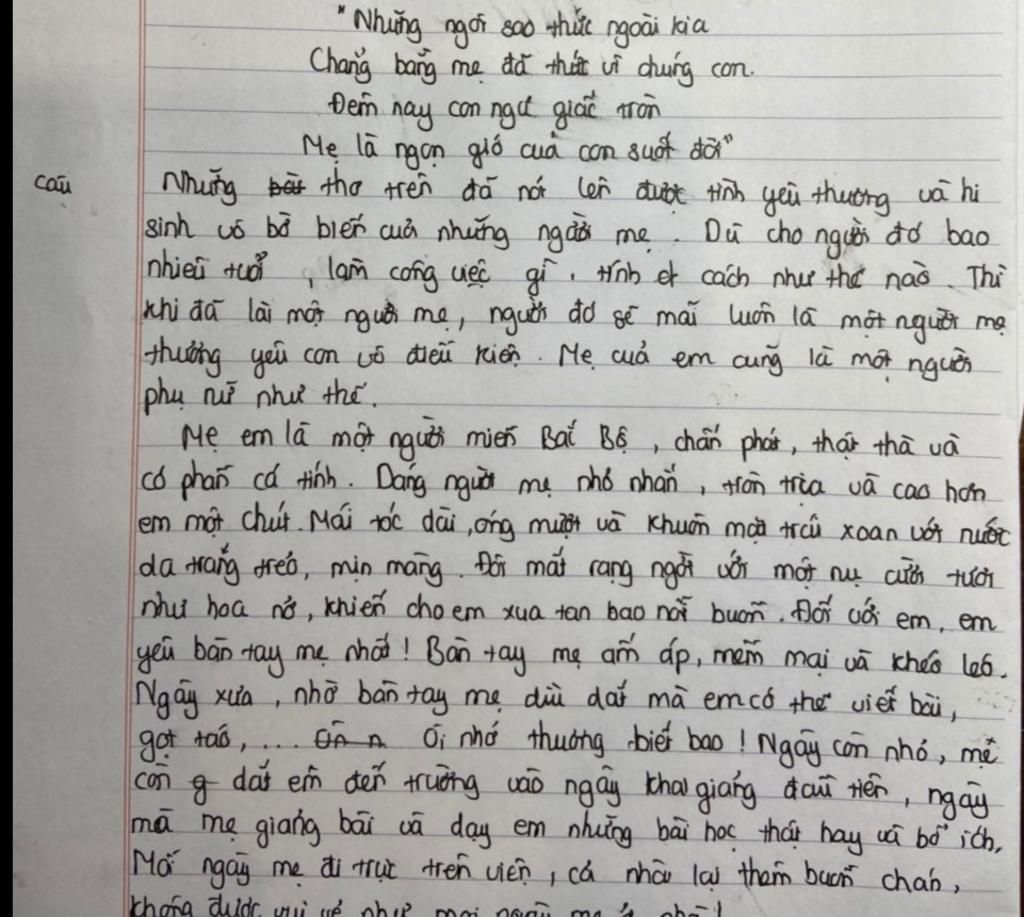 "Những ngôi sao thức ngoài kia
Chẳng bằng mẹ đã thức vì chúng con.
Đêm nay con ngủ giấc tròn
Mẹ là ngọn gió của con suốt đời"
câu
Những bài thơ trên đã nói lên được tình yêu thương và hi
sinh vô bờ biến của những người mẹ. Dù cho người đó bao
nhiêu tuổi, làm công việc gì, tính et cách như thế nào. Thì
khi đã lài một người mẹ, người đó sẽ mãi luôn là một người mẹ
thương yêu con vô điều kiện. Mẹ của em cũng là một người
phụ nữ như thế.
Mẹ em là một người miền Bắc Bộ, chân phát, thật thà và
có phần cá tính. Dáng người mẹ nhỏ nhắn, tròn trịa và cao hơn
em một chút. Mái tóc dài, óng mượt và khuôn mặt trái xoan với nước
da trắng trẻo, mịn màng. Đôi mắt rạng ngời với một nụ cười tươi
như hoa nở, khiến cho em xua tan bao nỗi buồn. Đối với em, em
yêu bàn tay mẹ nhất! Bàn tay mẹ ấm áp, mềm mại và khéo léo.
Ngày xưa, nhờ bàn tay mẹ dìu dắt mà em có thể viết bài,
gọt táo, ... Ôi nhớ thương biết bao! Ngày còn nhỏ, mẹ
còn g dắt em đến trường vào ngày khai giảng đầu tiên, ngày
mà mẹ giảng bài và dạy em những bài học thật hay và bổ ích.
Mỗi ngày mẹ đi trực trên viện, cả nhà lại thêm buồn chán,
không được vui vẻ như mọi ngày mẹ ở nhà!